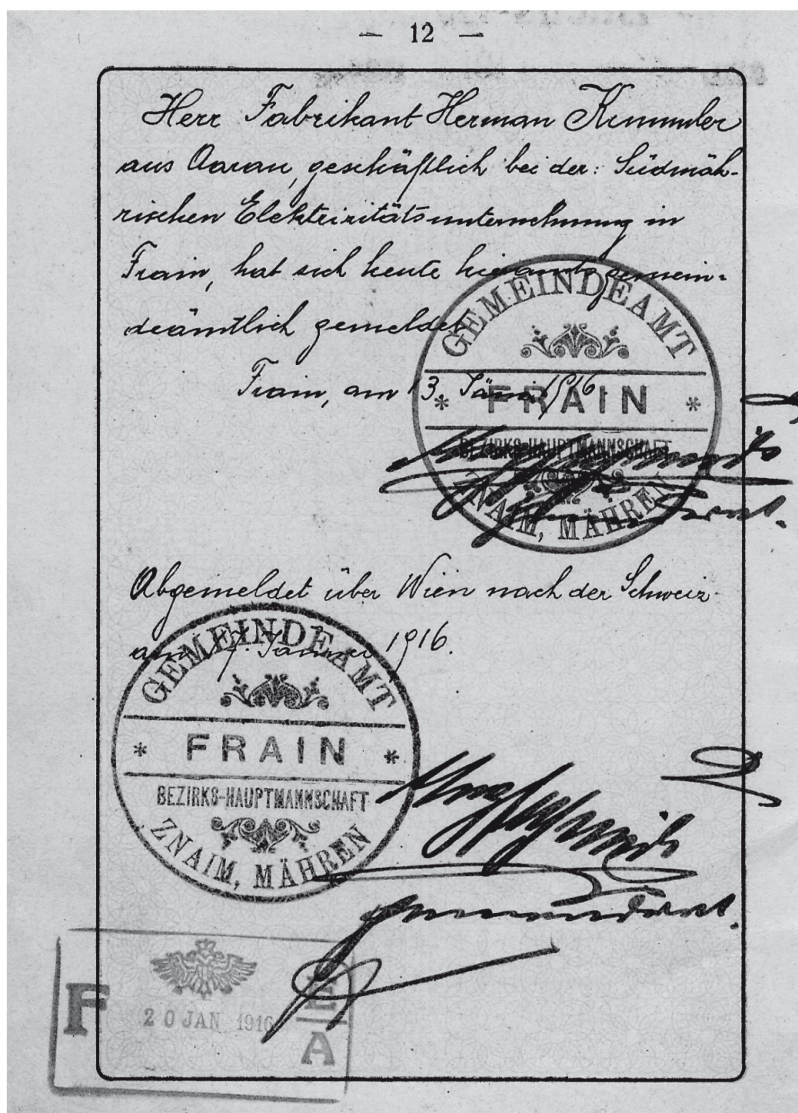 — 12 —
Herr Fabrikant Herman Kummler
aus Aarau, geschäftlich bei der: Südmäh-
rischen Elektrizitätsunternehmung in
Frain, hat sich heute hieramts gemein-
deämtlich gemeldet
Frain, am 13. Jänn. 1916
GEMEINDEAMT
* FRAIN *
BEZIRKS-HAUPTMANNSCHAFT
ZNAIM, MÄHREN
Abgemeldet über Wien nach der Schweiz.
am Jänner 1916.
GEMEINDEAMT
* FRAIN *
BEZIRKS-HAUPTMANNSCHAFT
ZNAIM, MÄHREN
F
E
20 JAN 1916
A